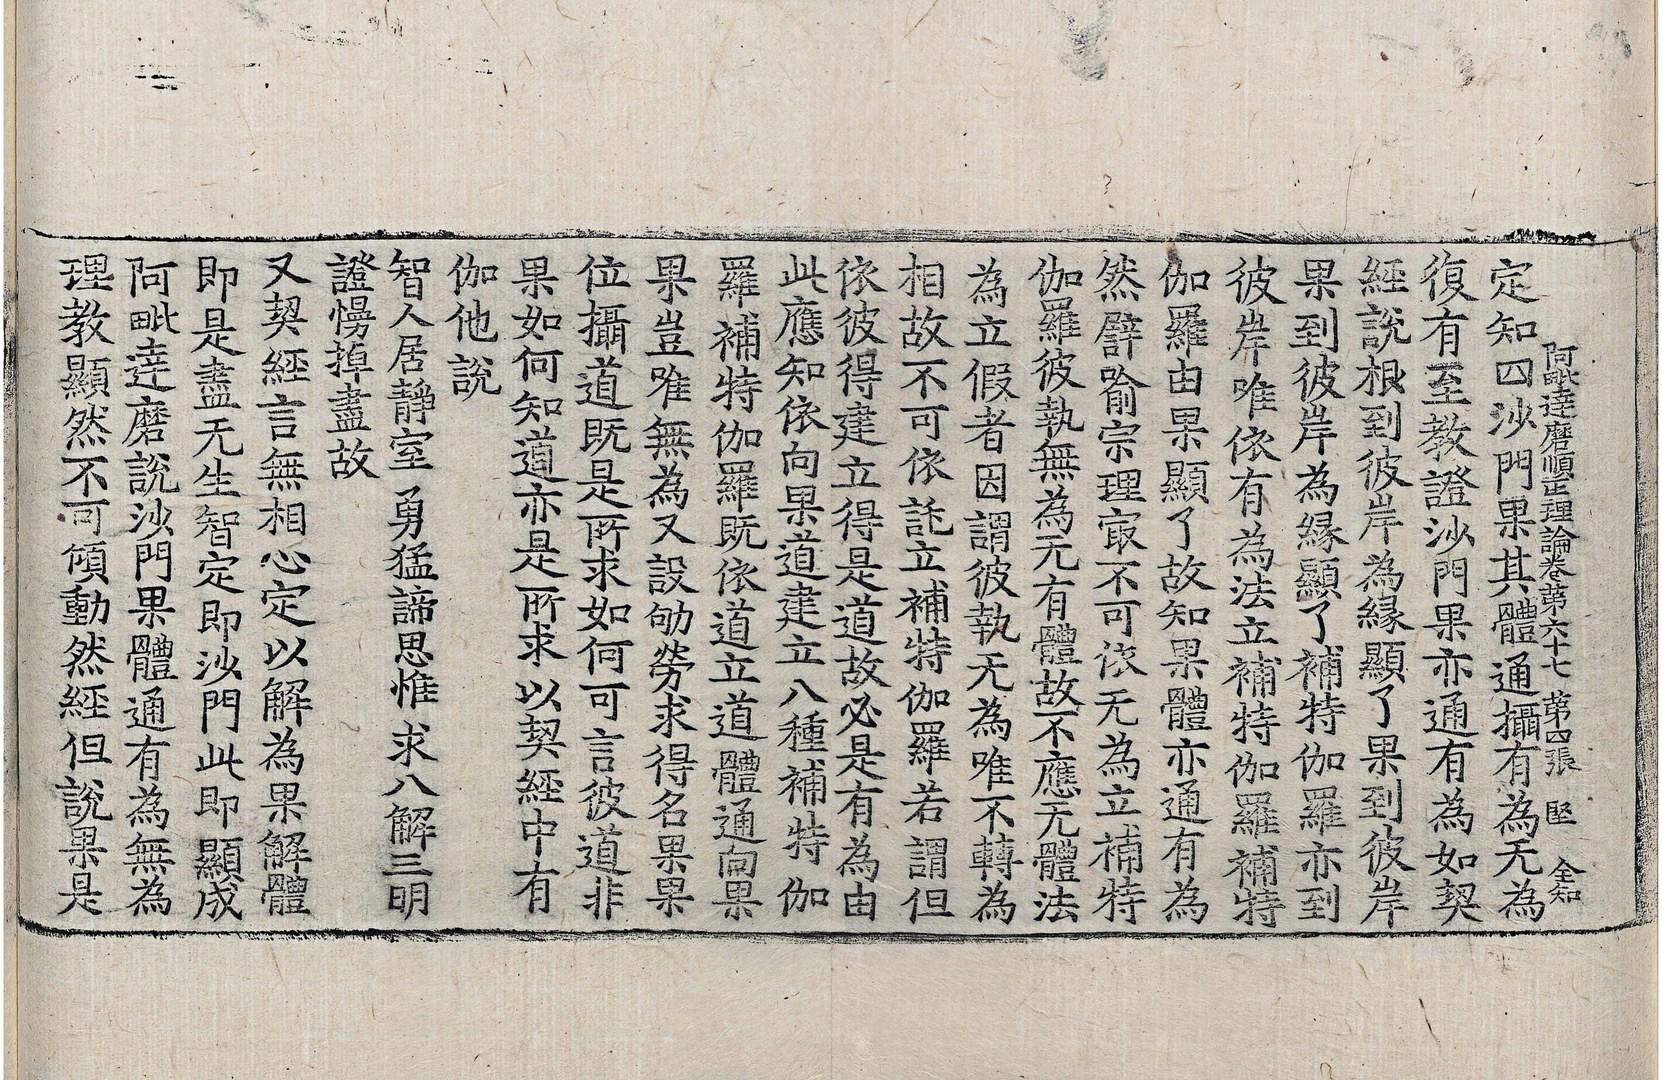 阿毗達磨順正理論卷第六十七 第四張 堅 全知
定知四沙門果其體通攝有為无為
復有至教證沙門果亦通有為如契
經說根到彼岸為緣顯了果到彼岸
果到彼岸為緣顯了補特伽羅亦到
彼岸唯依有為法立補特伽羅補特
伽羅由果顯了故知果體亦通有為
然譬喻宗理㝡不可依无為立補特
伽羅彼執無為无有體故不應无體法
為立假者因謂彼執无為唯不轉為
相故不可依託立補特伽羅若謂但
依彼得建立得是道故必是有為由
此應知依向果道建立八種補特伽
羅補特伽羅既依道立道體通向果
果豈唯無為又設劬勞求得名果果
位攝道既是所求如何可言彼道非
果如何知道亦是所求以契經中有
伽他說
智人居靜室 勇猛諦思惟 求八解三明
證慢掉盡故
又契經言無相心定以解為果解體
即是盡无生智定即沙門此即顯成
阿毗達磨說沙門果體通有為無為
理教顯然不可傾動然經但說果是